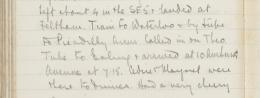 left about 4 in the S.E.5. landed at
Feltham. Train to Waterloo & by tube
to Piccadilly Circus. Called in on Theo
Tube to Ealing & arrived at 10
Avenue at 7.15. & Margaret were
there to dinner. Had a very cheery